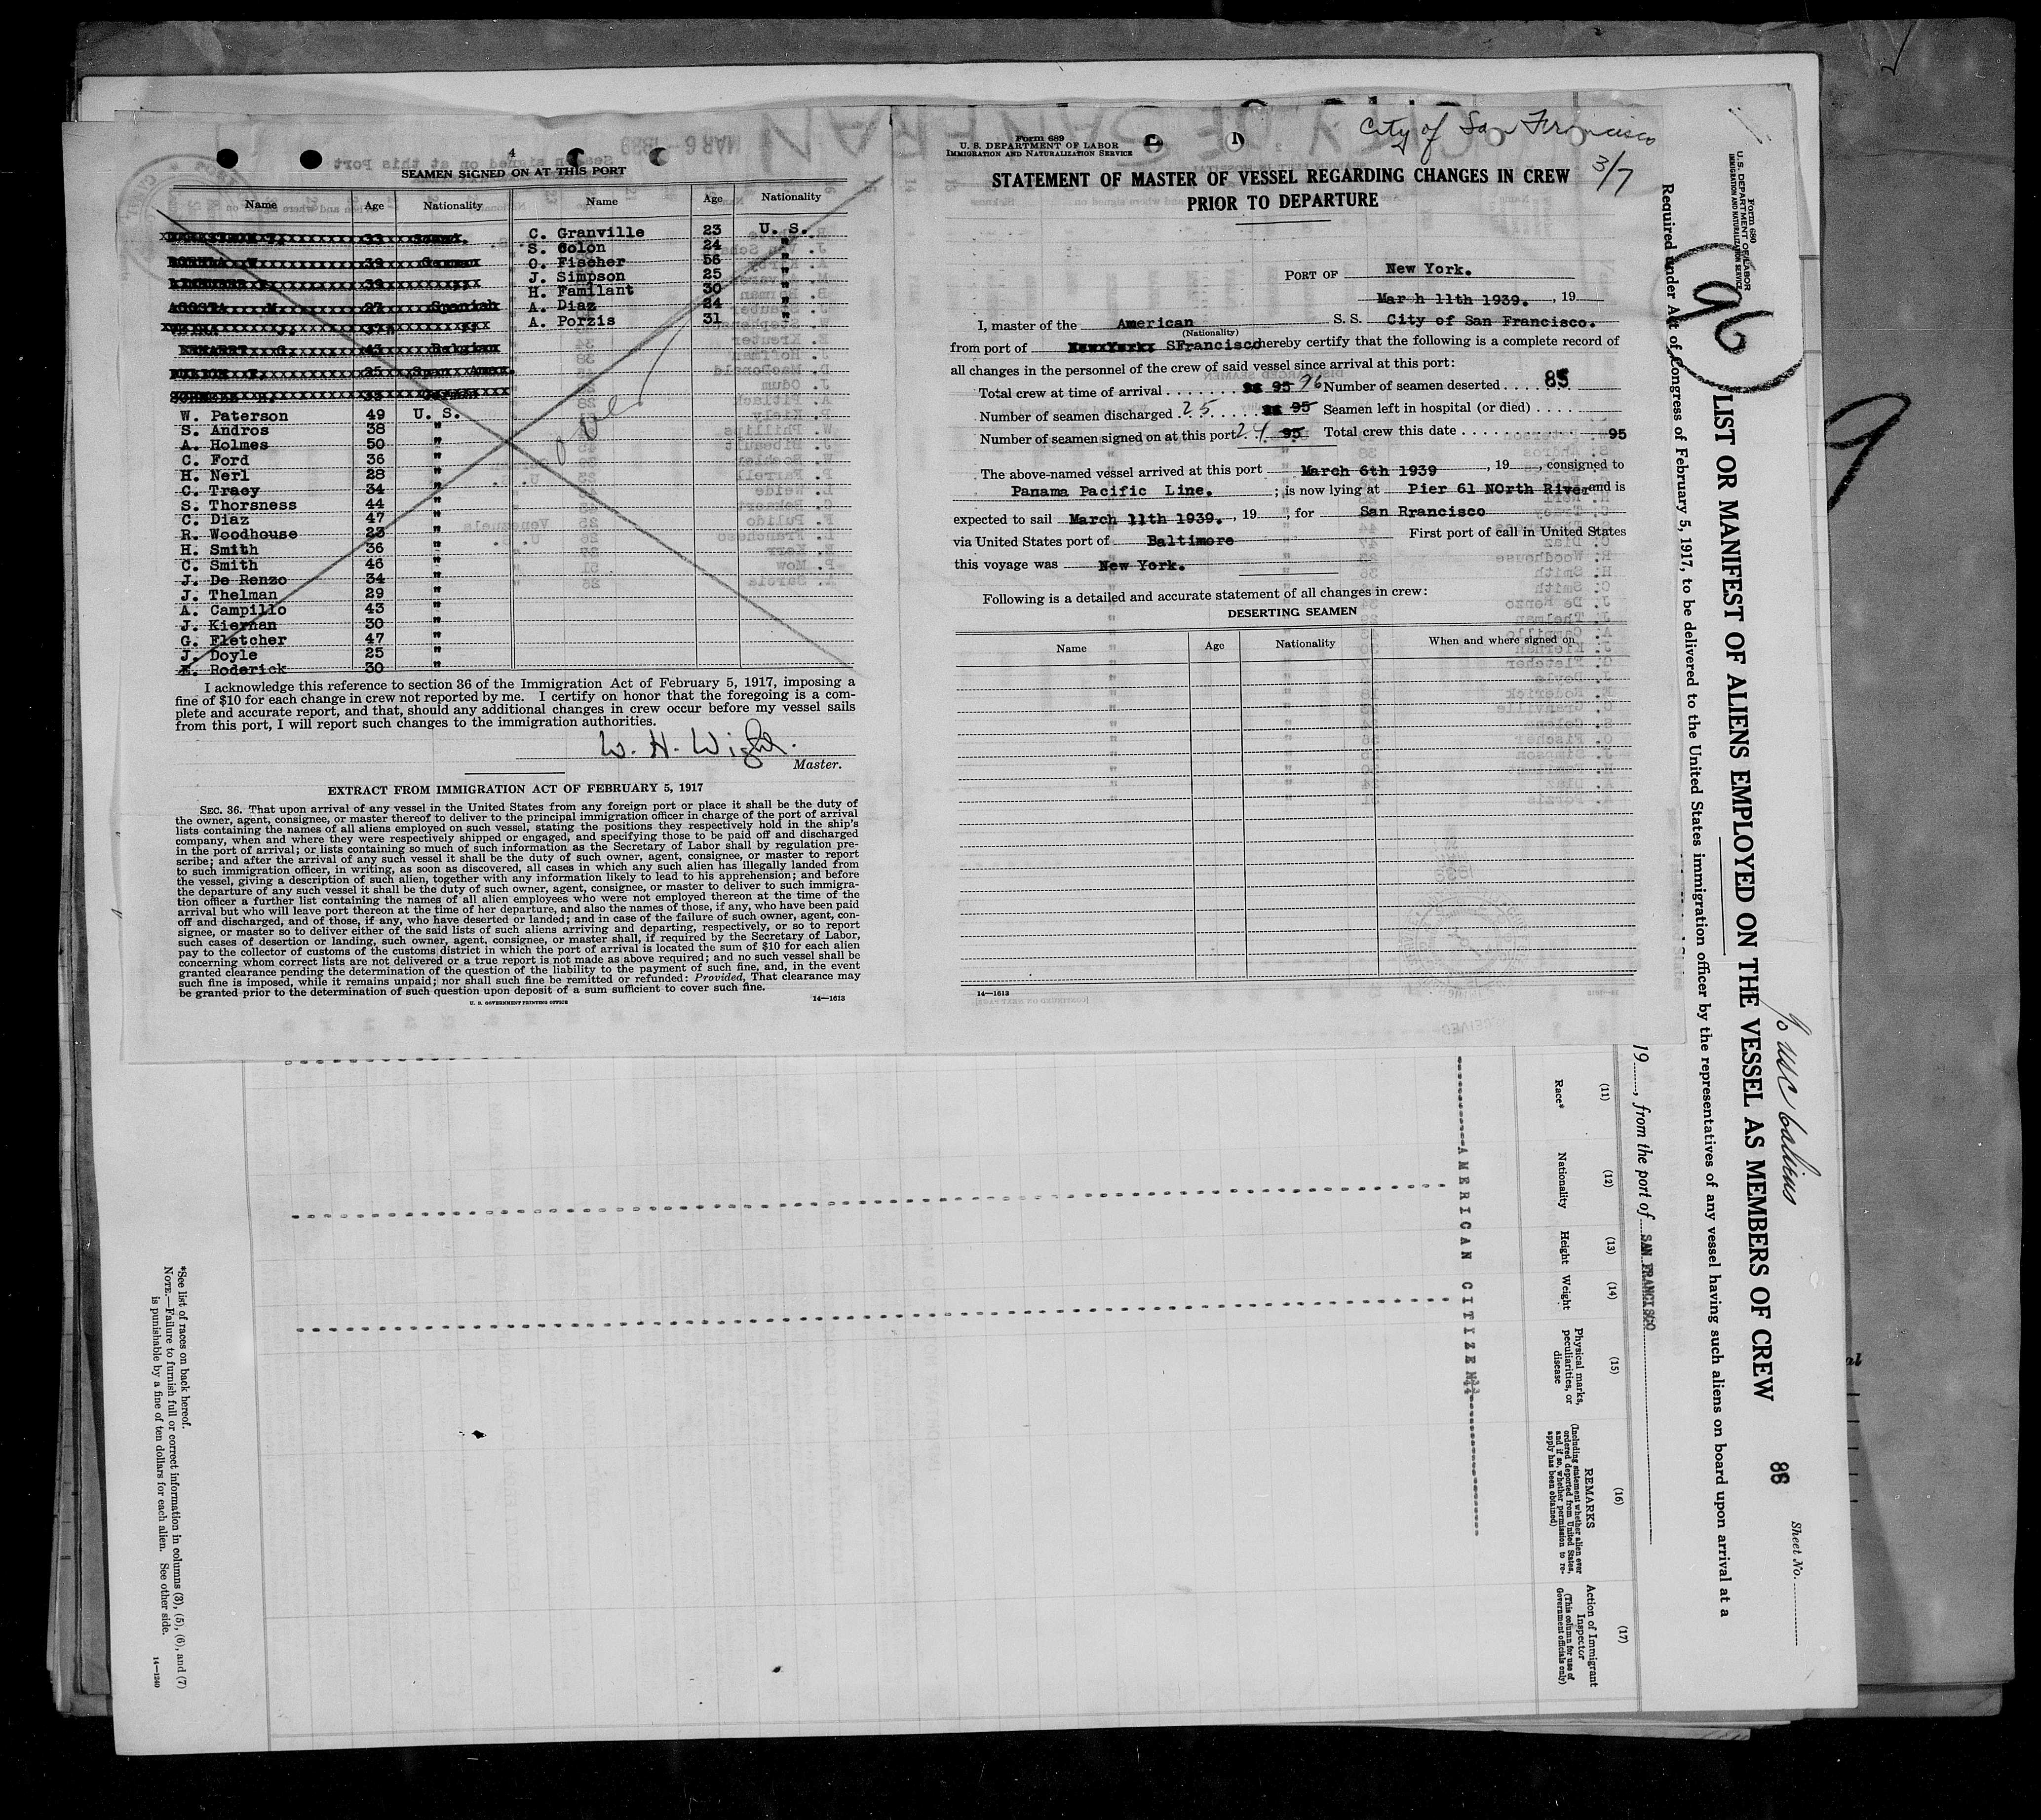 4
SEAMEN SIGNED ON AT THIS PORT
Name Age Nationality Name Age Nationality
C. Granville 23 U. S.
S. Colon 24 "
O. Fischer 56 "
J. Simpson 25 "
H. Familant 30 "
A. Diaz 24 "
A. Porzis 31 "
33
39 German
39
ACOSTA M. 27 Spanish
43 Belgian
25 Span Amer.
W. Paterson 49 U. S.
S. Andros 38 "
A. Holmes 50 "
C. Ford 36 "
H. Nerl 28 "
C. Tracy 34 "
S. Thorsness 44 "
C. Diaz 47 "
R. Woodhouse 23 "
H. Smith 36 "
C. Smith 46 "
J. De Renzo 34 "
J. Thelman 29 "
A. Campillo 43 "
J. Kiernan 30 "
G. Fletcher 47 "
J. Doyle 25 "
E. Roderick 30 "
over
I acknowledge this reference to section 36 of the Immigration Act of February 5, 1917, imposing a
fine of $10 for each change in crew not reported by me. I certify on honor that the foregoing is a com-
plete and accurate report, and that, should any additional changes in crew occur before my vessel sails
from this port, I will report such changes to the immigration authorities.
W. H. Wight.
Master.
EXTRACT FROM IMMIGRATION ACT OF FEBRUARY 5, 1917
SEC. 36. That upon arrival of any vessel in the United States from any foreign port or place it shall be the duty of
the owner, agent, consignee, or master thereof to deliver to the principal immigration officer in charge of the port of arrival
lists containing the names of all aliens employed on such vessel, stating the positions they respectively hold in the ship's
company, when and where they were respectively shipped or engaged, and specifying those to be paid off and discharged
in the port of arrival; or lists containing so much of such information as the Secretary of Labor shall by regulation pre-
scribe; and after the arrival of any such vessel it shall be the duty of such owner, agent, consignee, or master to report
to such immigration officer, in writing, as soon as discovered, all cases in which any such alien has illegally landed from
the vessel, giving a description of such alien, together with any information likely to lead to his apprehension; and before
the departure of any such vessel it shall be the duty of such owner, agent, consignee, or master to deliver to such immigra-
tion officer a further list containing the names of all alien employees who were not employed thereon at the time of the
arrival but who will leave port thereon at the time of her departure, and also the names of those, if any, who have been paid
off and discharged, and of those, if any, who have deserted or landed; and in case of the failure of such owner, agent, con-
signee, or master so to deliver either of the said lists of such aliens arriving and departing, respectively, or so to report
such cases of desertion or landing, such owner, agent, consignee, or master shall, if required by the Secretary of Labor,
pay to the collector of customs of the customs district in which the port of arrival is located the sum of $10 for each alien
concerning whom correct lists are not delivered or a true report is not made as above required; and no such vessel shall be
granted clearance pending the determination of the question of the liability to the payment of such fine, and, in the event
such fine is imposed, while it remains unpaid; nor shall such fine be remitted or refunded: Provided, That clearance may
be granted prior to the determination of such question upon deposit of a sum sufficient to cover such fine.
U. S. GOVERNMENT PRINTING OFFICE 14—1613
Form 689
U. S. DEPARTMENT OF LABOR
IMMIGRATION AND NATURALIZATION SERVICE
City of San Francisco
3/7
STATEMENT OF MASTER OF VESSEL REGARDING CHANGES IN CREW
PRIOR TO DEPARTURE
PORT OF New York.
Mar h 11th 1939. , 19
I, master of the American S. S. City of San Francisco.
(Nationality)
from port of SFrancisco hereby certify that the following is a complete record of
all changes in the personnel of the crew of said vessel since arrival at this port:
Total crew at time of arrival 95 96 Number of seamen deserted 85
Number of seamen discharged 25 95 Seamen left in hospital (or died)
Number of seamen signed on at this port 24 95 Total crew this date 95
The above-named vessel arrived at this port March 6th 1939 , 19 , consigned to
Panama Pacific Line. ; is now lying at Pier 61 NOrth River and is
expected to sail March 11th 1939. , 19 , for San Rrancisco
via United States port of Baltimore First port of call in United States
this voyage was New York.
Following is a detailed and accurate statement of all changes in crew:
DESERTING SEAMEN
Name Age Nationality When and where signed on
14—1613
Form 680
U. S. DEPARTMENT OF LABOR
IMMIGRATION AND NATURALIZATION SERVICE
96
9
LIST OR MANIFEST OF ALIENS EMPLOYED ON THE VESSEL AS MEMBERS OF CREW
88
Sheet No.
Required under Act of Congress of February 5, 1917, to be delivered to the United States immigration officer by the representatives of any vessel having such aliens on board upon arrival at a
19 , from the port of SAN FRANCISCO
(11) (12) (13) (14) (15) (16) (17)
Race*
Nationality
Height
Weight
Physical marks, peculiarities, or disease
REMARKS
(Including statement whether alien ever ordered deported from United States, and if so, whether permission to reapply has been obtained)
Action of Immigrant Inspector
(This column for use of Government officials only)
AMERICAN CITIZEN
*See list of races on back hereof.
NOTE.—Failure to furnish full or correct information in columns (3), (5), (6), and (7)
is punishable by a fine of ten dollars for each alien. See other side.
14—1240